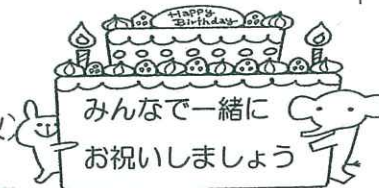 Happy
Birthday
みんなで一緒に
お祝いしましょう